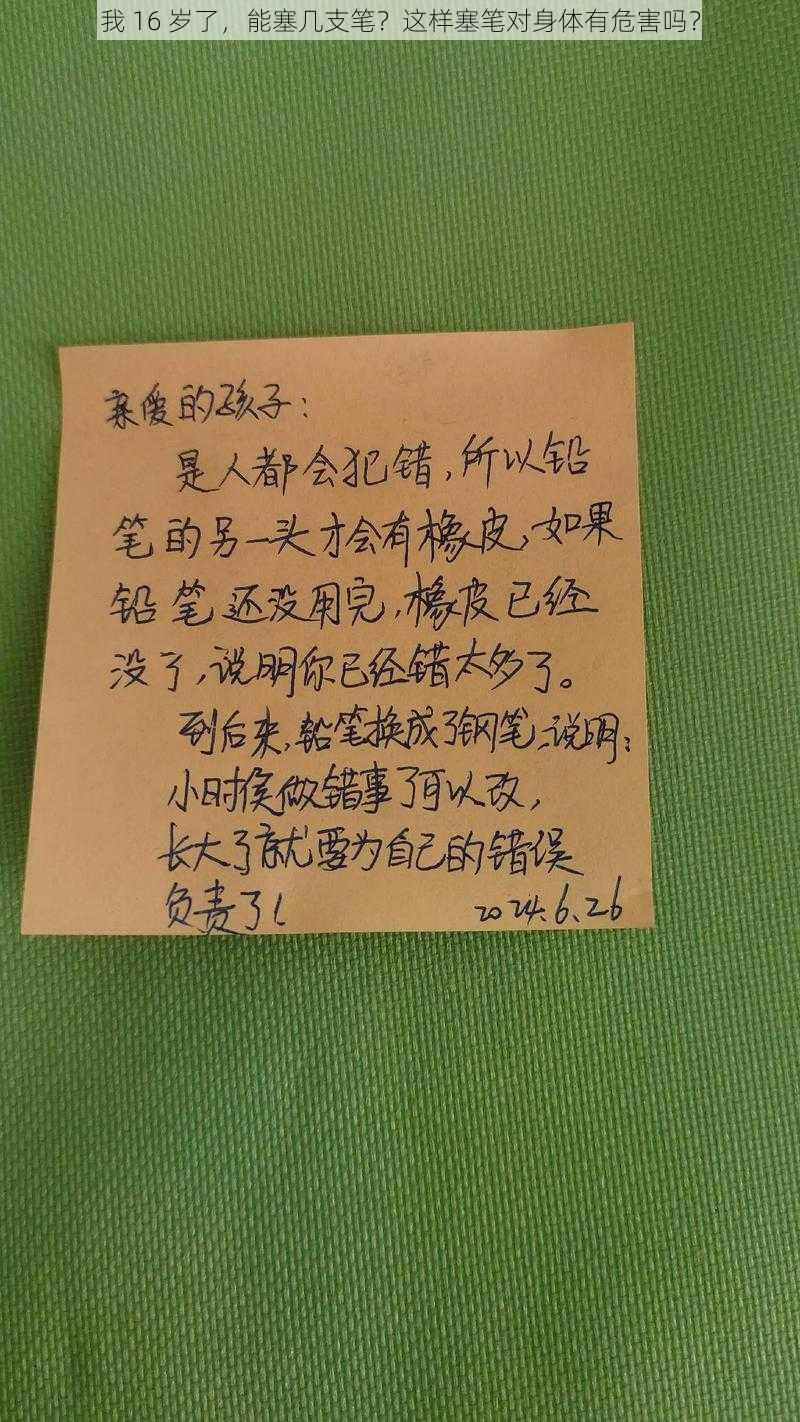 我 16 岁了，能塞几支笔？这样塞笔对身体有危害吗？
亲爱的孩子：
是人都会犯错，所以铅
笔的另一头才会有橡皮，如果
铅笔还没用完，橡皮已经
没了，说明你已经错太多了。
到后来，铅笔换成了钢笔，说明：
小时侯做错事了可以改，
长大了就要为自己的错误
负责了！
2024.6.26